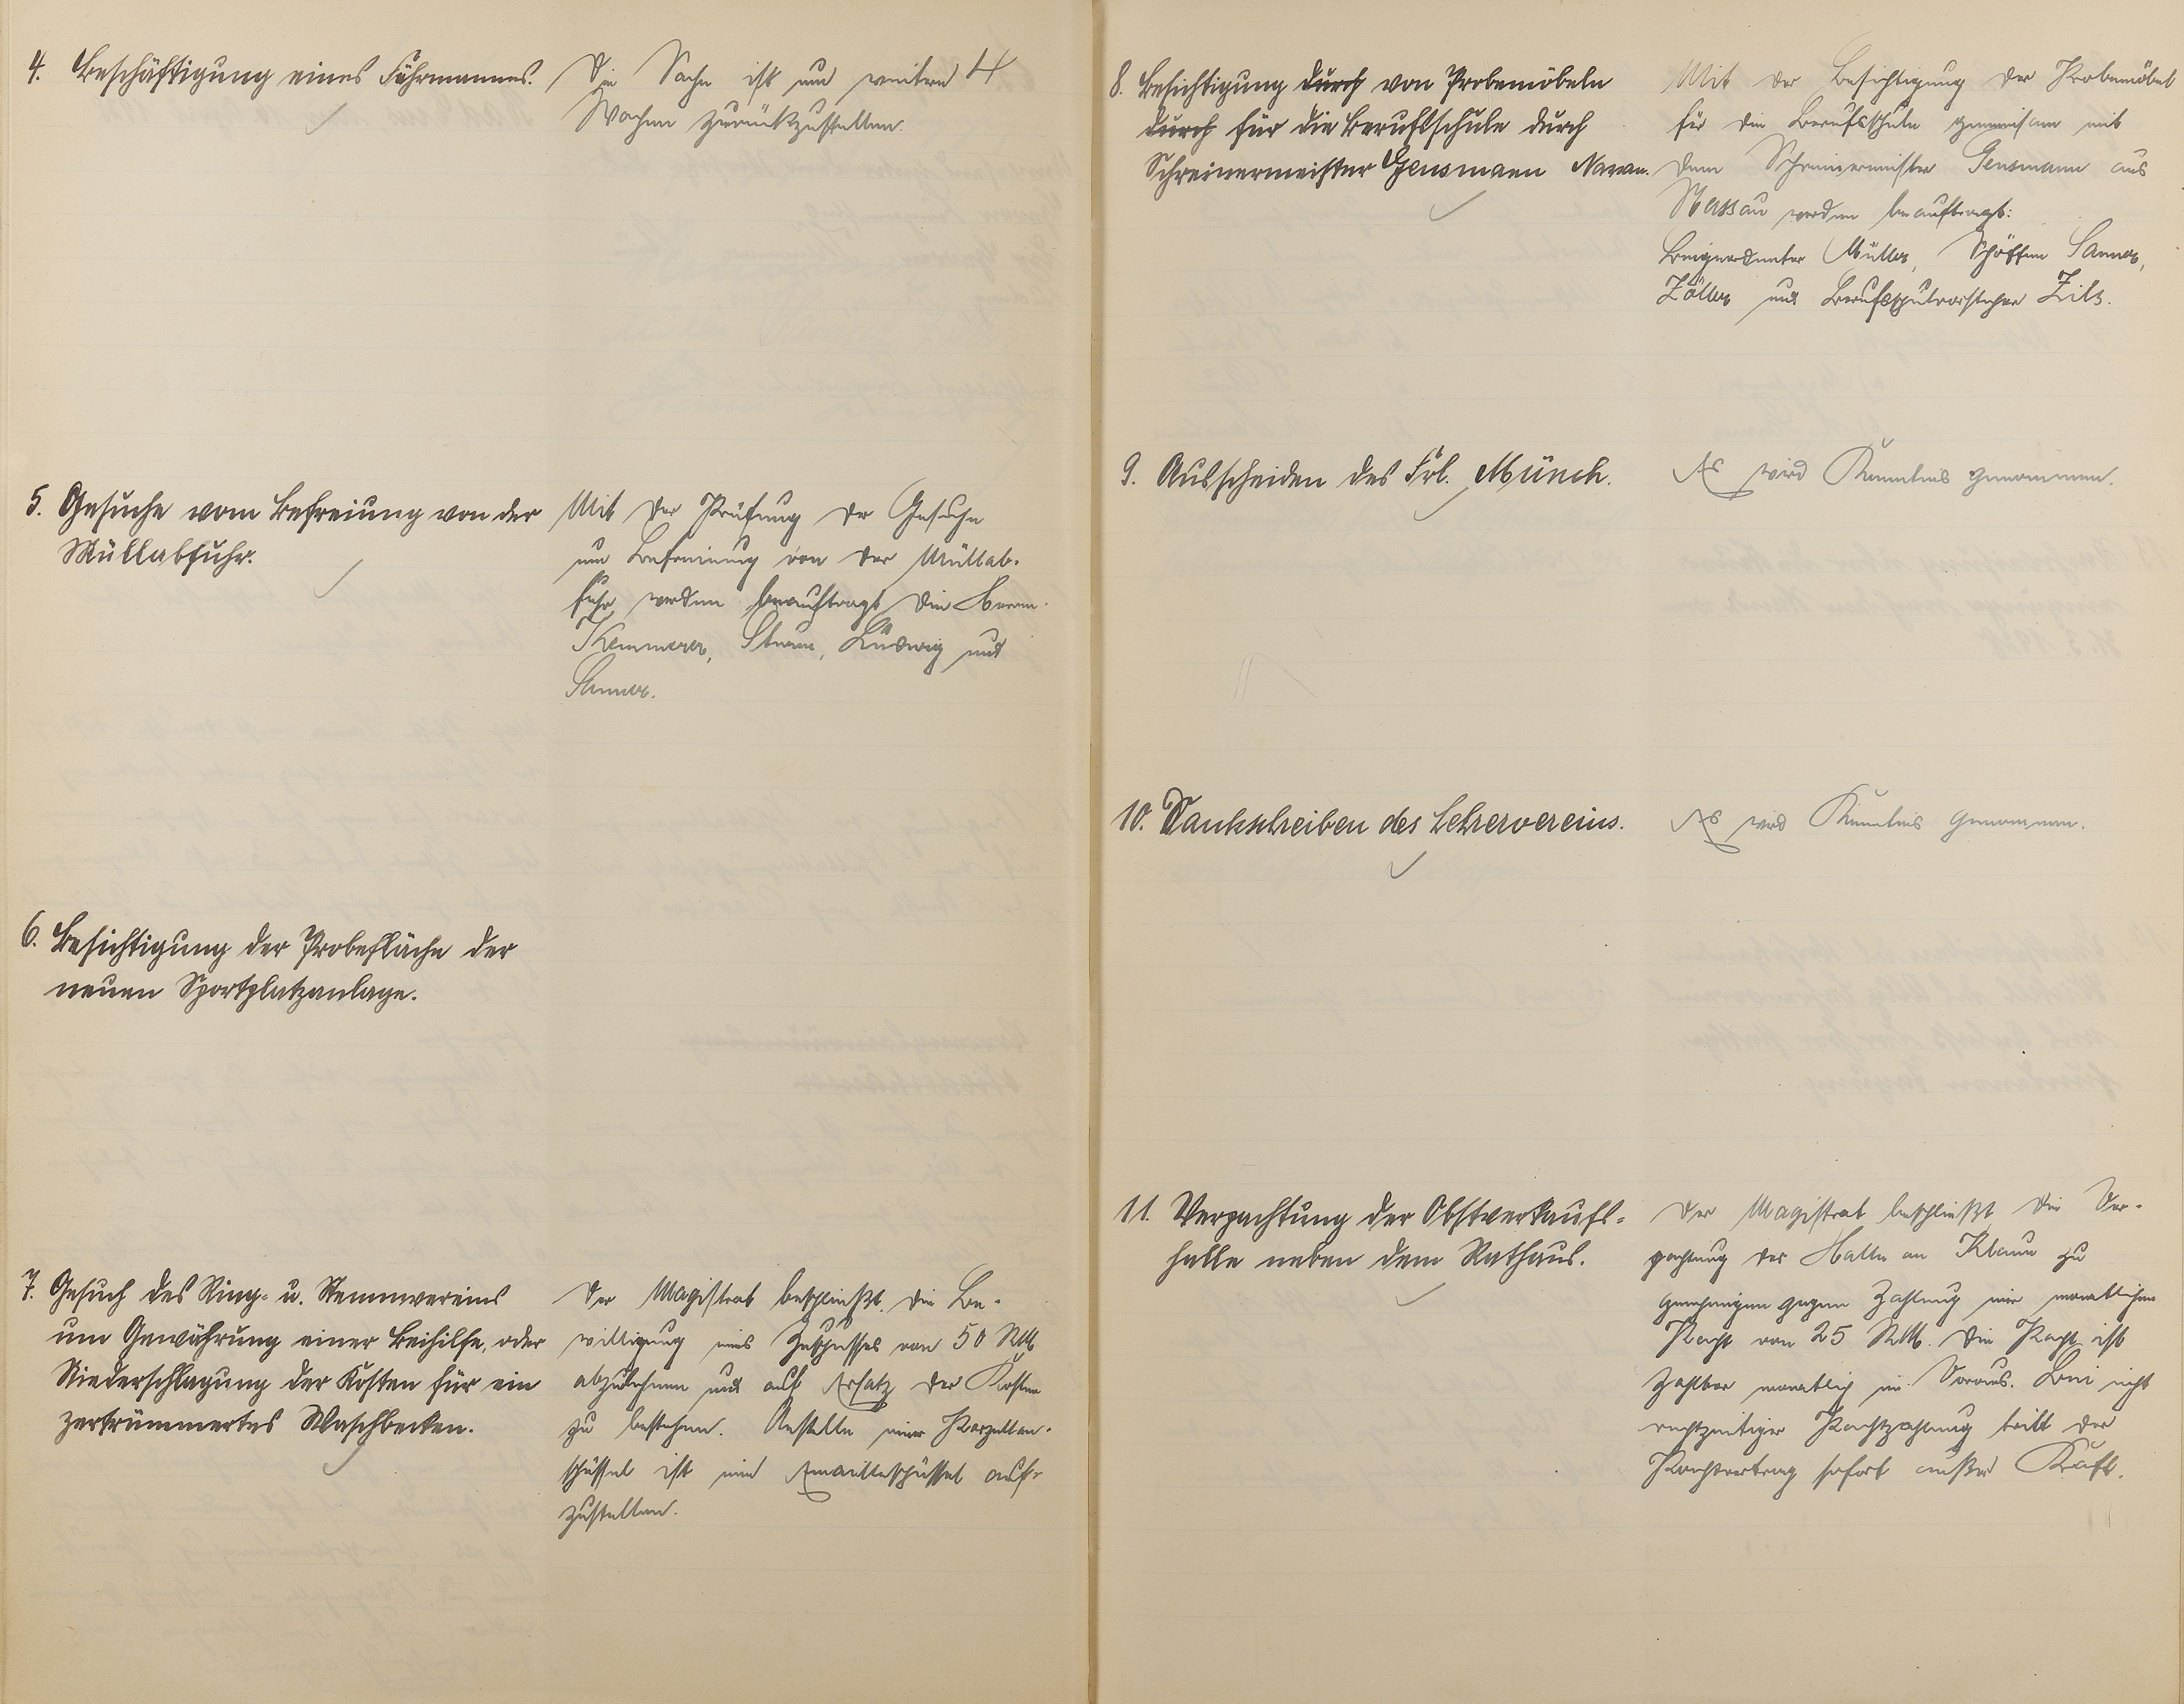 4. Beschäftigung eines Fuhrmannes.
Die Sache ist um weitere 4
Wochen zurückzustellen.
5. Gesuche vom Befreiung von der
Müllabfuhr.
Mit der Prüfung der Gesuche
um Befreiung von der Müllab-
fuhr werden beauftragt die Herren
Kemmerer, Sturm, Ludwig und
Sanner.
6. Besichtigung der Probefläche der
neuen Sportplatzanlage.
7. Gesuch des Ring- u. Stemmvereins
um Gewährung einer Beihilfe, oder
Niederschlagung der Kosten für ein
zertrümmertes Waschbecken.
Der Magistrat beschließt, die Be-
willigung eines Zuschusses von 50 RM
abzulehnen und auf Ersatz der Kosten
zu bestehen. Anstelle einer Porzellan-
schüssel ist eine Emailleschüssel auf-
zustellen.
8. Besichtigung durch von Probemöbeln
durch für die Berufsschule durch
Schreinermeister Gensmann
Mit der Besichtigung der Probemöbel
für die Berufsschule gemeinsam mit
dem Schreinermeister Gensmann aus
Nassau werden beauftragt:
Beigeordneter Müller, Schöffen Sanner,
Zöller und Berufsschulvorsteher Zils.
9. Ausscheiden des Frl. Münch.
Es wird Kenntnis genommen.
10. Dankschreiben des Lehrervereins.
Es wird Kenntnis genommen.
11. Verpachtung der Obstverkaufs-
halle neben dem Rathaus.
Der Magistrat beschließt, die Ver-
pachtung der Halle an Klaum zu
genehmigen gegen Zahlung einer monatlichen
Pacht von 25 RM. Die Pacht ist
zahlbar monatlich im Voraus. Bei nicht
rechtzeitiger Pachtzahlung tritt der
Pachtvertrag sofort außer Kraft.